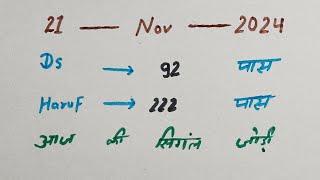 21 — Nov — 2024
Ds → 92 पास
Haruf → 222 पास
आज की सिगंल जोड़ी